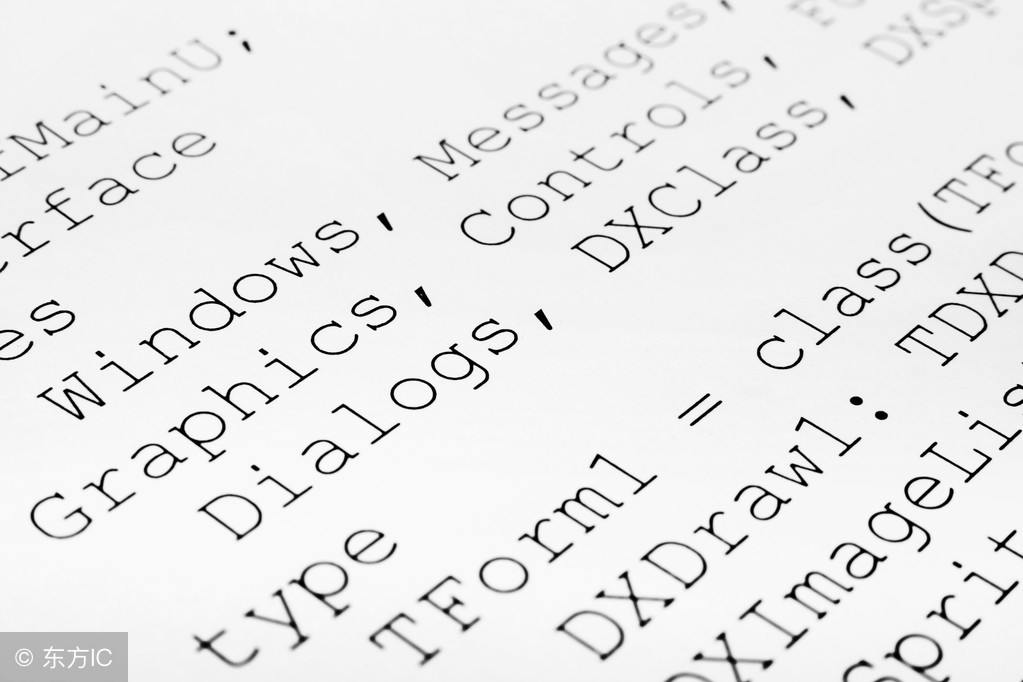 MainU;
erface
es
Windows, Messages,
Graphics, Controls,
Dialogs, DXClass, DXSp
type
TForm1 = class(TFo
DXDraw1: TDXD
DXImageLis
Sprit
© 东方IC